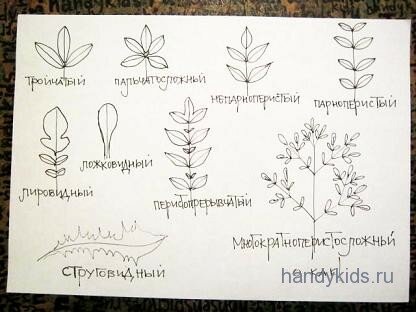 тройчатый
пальчатосложный
непарноперистый
парноперистый
лировидный
ложковидный
перистопрерывчатый
многократноперистосложный
струговидный
handykids.ru